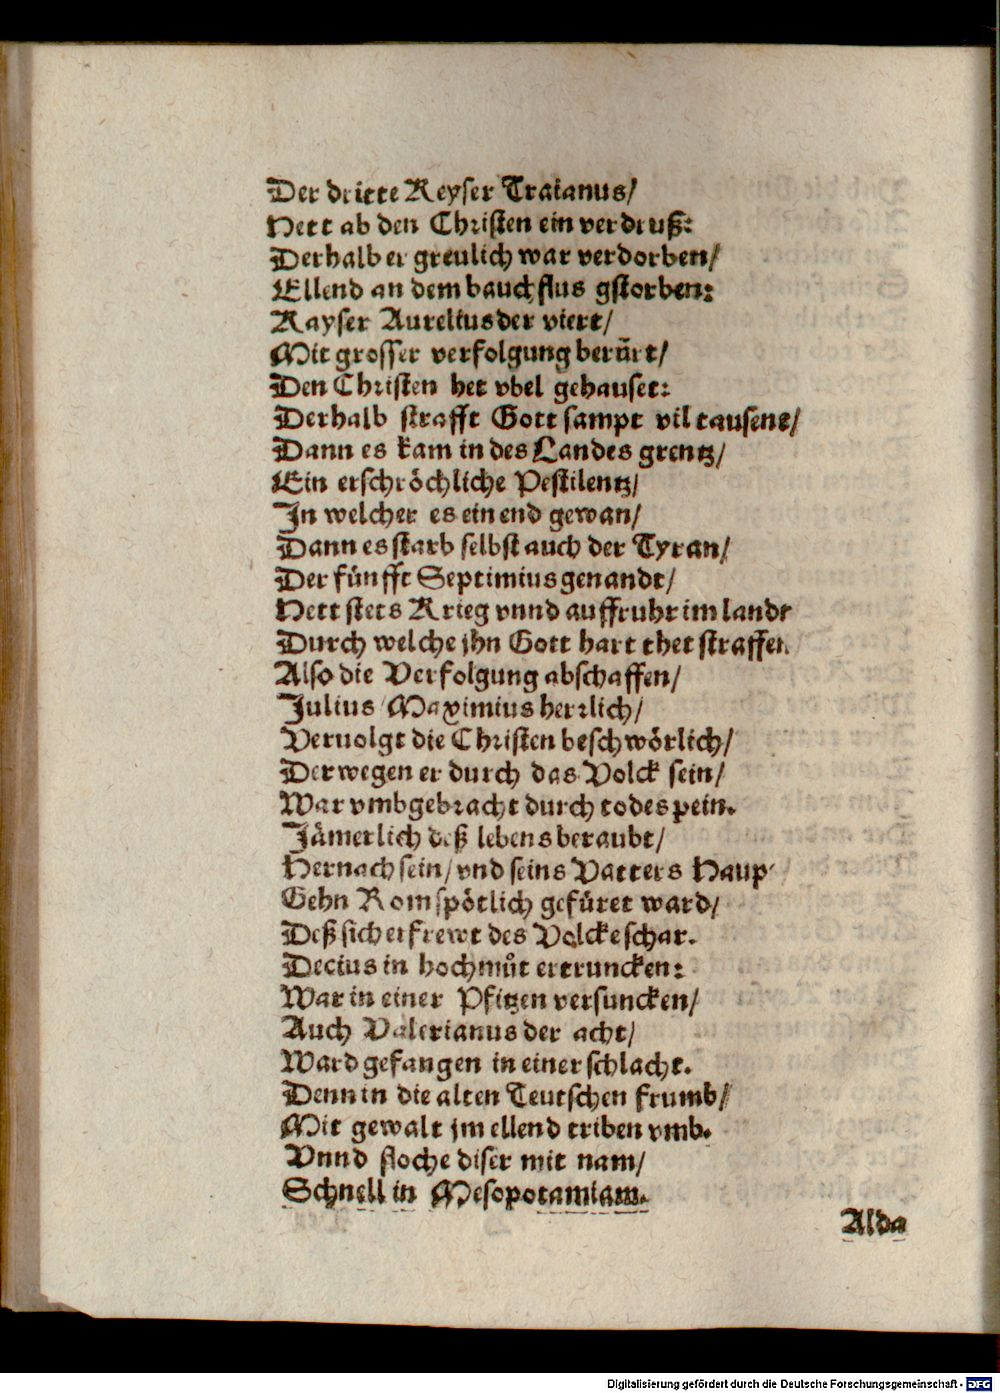 Der dritte Keyser Traianus/
Hett ab den Christen ein verdruß:
Derhalb er greulich war verdorben/
Ellend an dem bauchflus gstorben:
Kayser Aurelius der viert/
Mit grosser verfolgung berürt/
Den Christen het vbel gehauset:
Derhalb strafft Gott sampt vil tausent/
Dann es kam in des Landes grentz/
Ein erschröchliche Pestilentz/
In welcher es ein end gewan/
Dann es starb selbst auch der Tyran/
Der fünfft Septimius genandt/
Hett stets Krieg vnnd auffruhr im landt
Durch welche jhn Gott hart thet straffen
Also die Verfolgung abschaffen/
Julius Maximius herrlich/
Veruolgt die Christen beschwörlich/
Derwegen er durch das Volck sein/
War vmbgebracht durch todes pein.
Jämerlich deß lebens beraubt/
Hernach sein/ vnd seins Vatters Haup
Gehn Rom spötlich gefüret ward/
Deß sich erfrewt des Volckes char.
Decius in hochmůt ertruncken:
War in einer Pfitzen versuncken/
Auch Valerianus der acht/
Ward gefangen in einer schlacht.
Denn in die alten Teutschen frumb/
Mit gewalt jm ellend triben vmb.
Vnnd floche diser mit nam/
Schnell in Mesopotamiam.
Alda
Digitalisierung gefördert durch die Deutsche Forschungsgemeinschaft - DFG